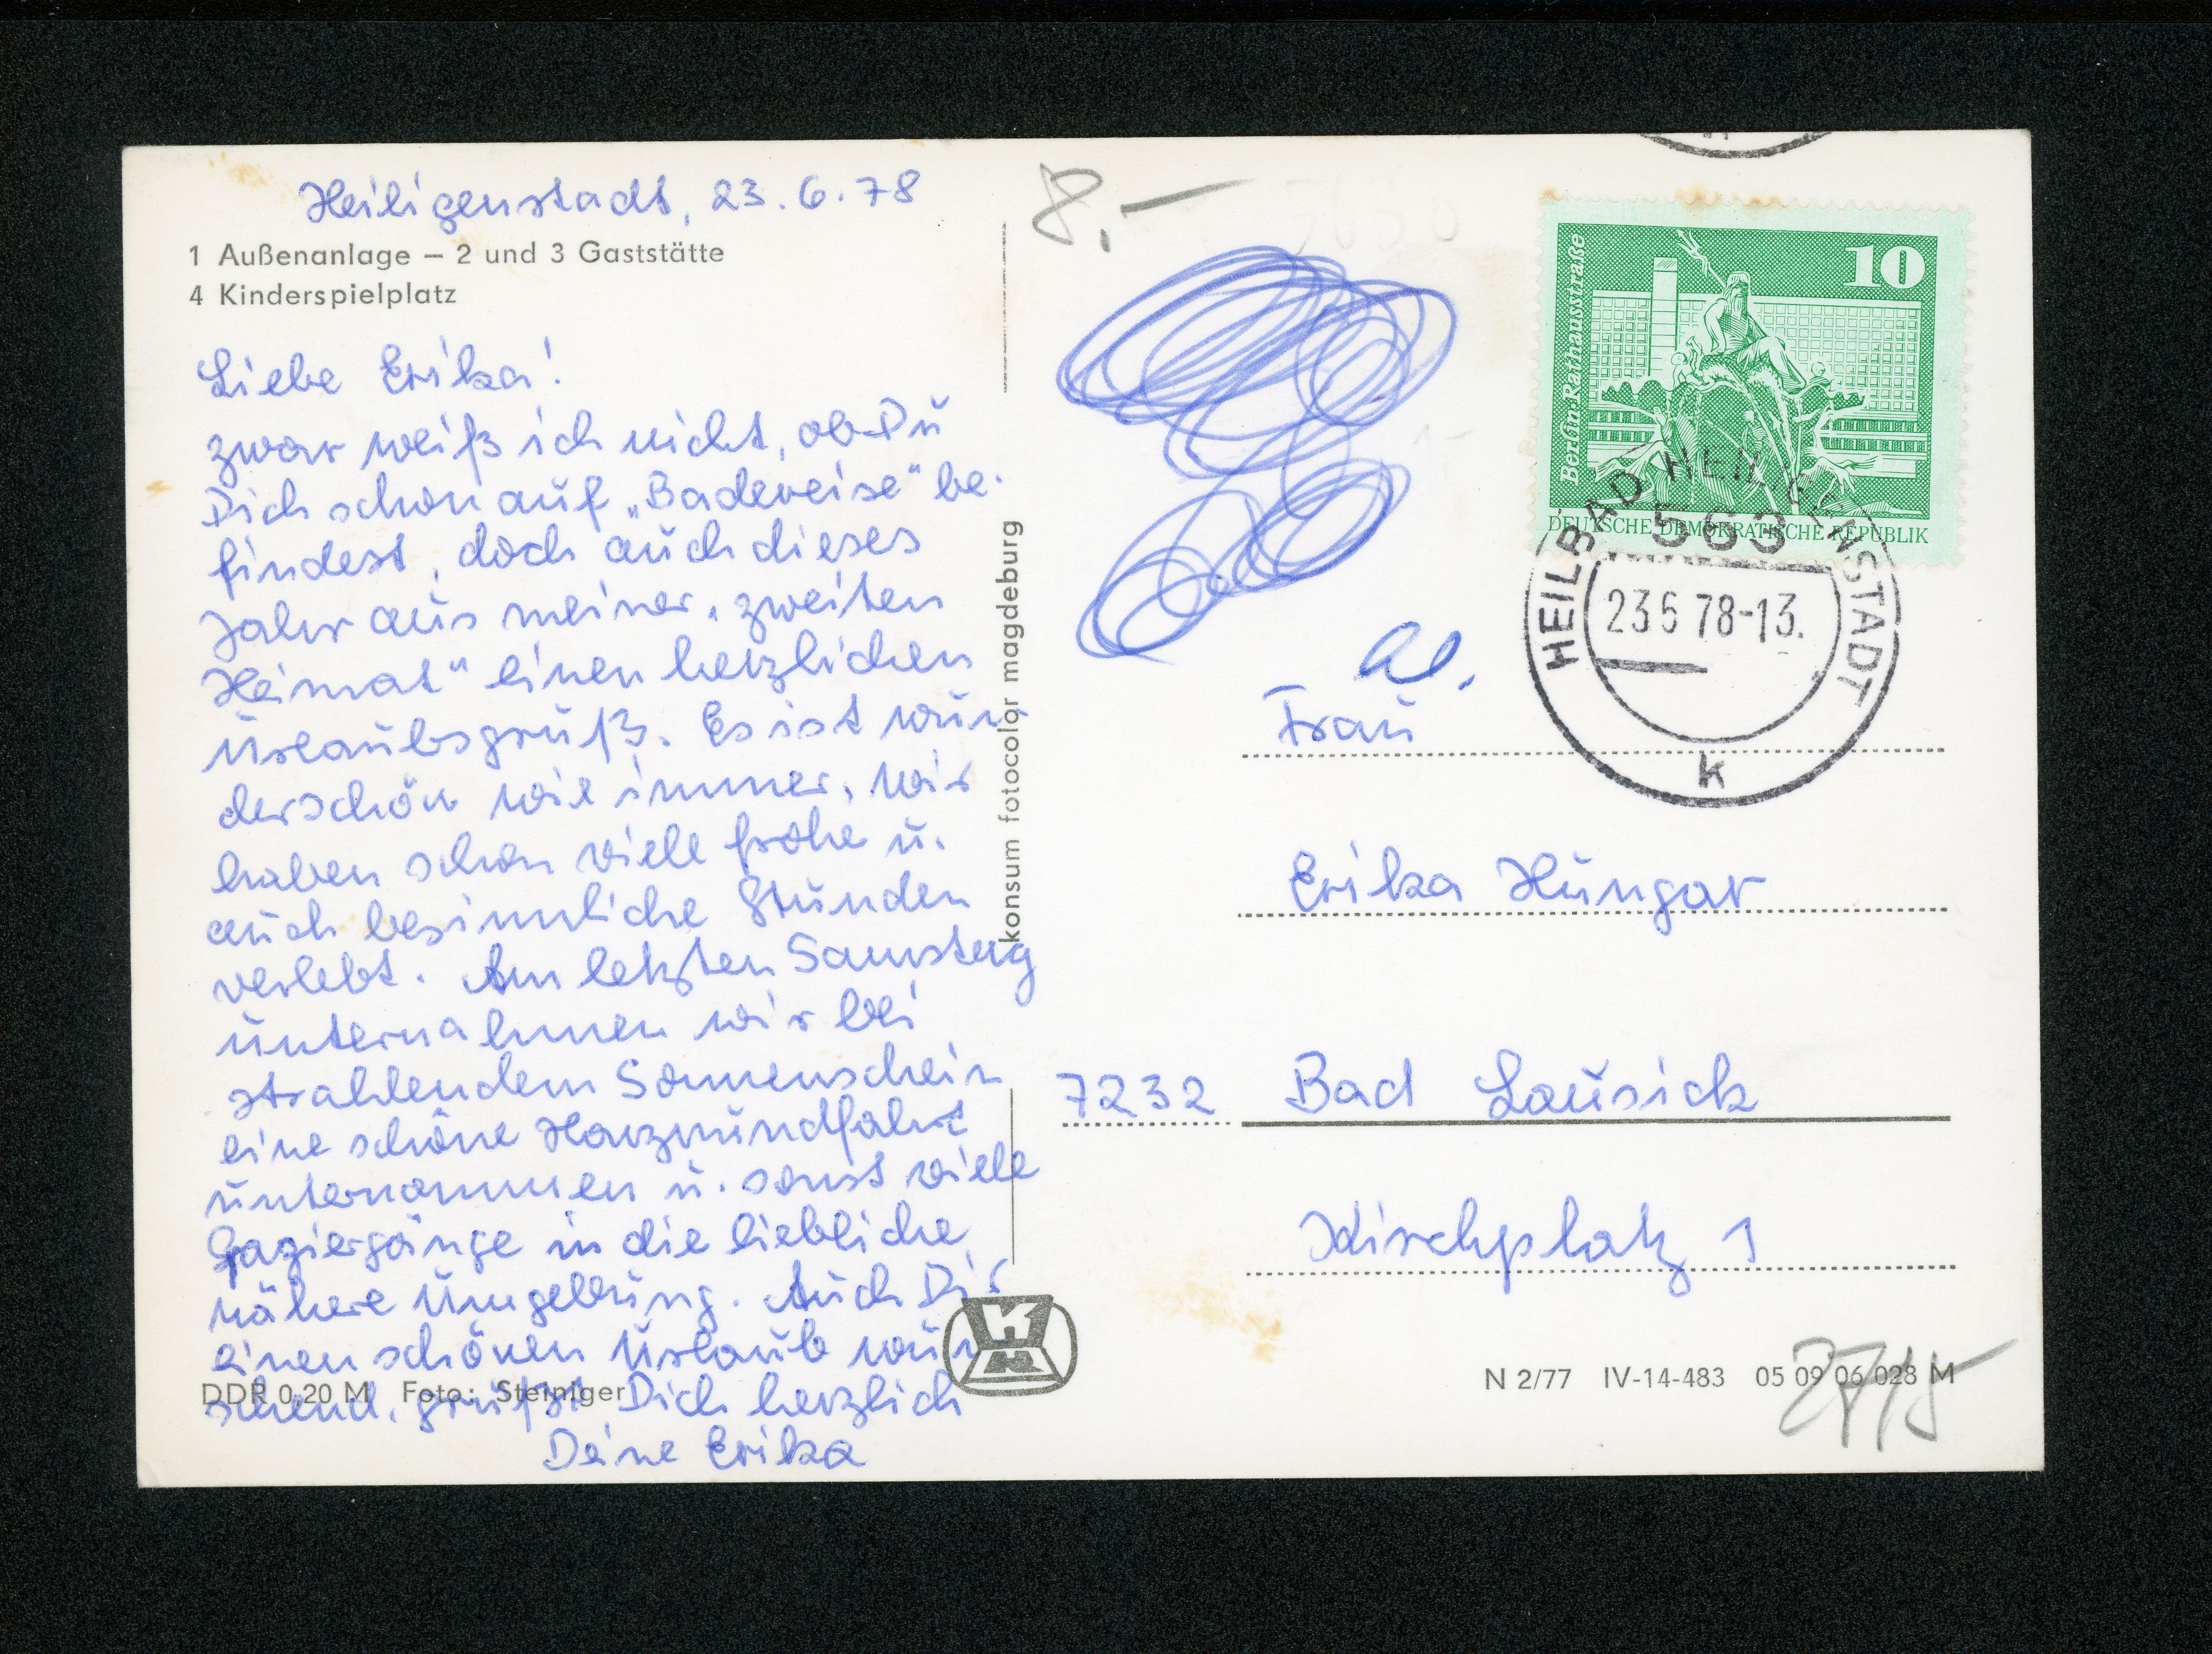 Heiligenstadt, 23.6.78
1 Außenanlage – 2 und 3 Gaststätte
4 Kinderspielplatz
Liebe Erika!
zwar weiß ich nicht, ob Du
Dich schon auf „Badereise" be-
findest, doch auch dieses
Jahr aus meiner „zweiten
Heimat" einen herzlichen
Urlaubsgruß. Es ist wun-
derschön wie immer, wir
haben schon viele frohe u.
auch besinnliche Stunden
verlebt. Am letzten Samstag
unternahmen wir bei
strahlendem Sonnenschein
eine schöne Harzrundfahrt
unternommen u. sonst viele
Spaziergänge in die liebliche
nähere Umgebung. Auch Dir
einen schönen Urlaub wün-
schend, grüßt Dich herzlich
Deine Erika
DDR 0,20 M Foto: Steiniger
konsum fotocolor magdeburg
8,–
Berlin·Rathausstraße
10
DEUTSCHE DEMOKRATISCHE REPUBLIK
HEILBAD HEILIGENSTADT
563
23 6 78-13.
k
Frau
Erika Hungar
7232 Bad Lausick
Kirchplatz 1
N 2/77 IV-14-483 05 09 06 028 M